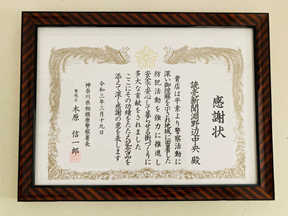 感謝状
読売新聞淵野辺中央 殿
貴店は平素より警察活動に
深い御理解を示され地域に密着した
防犯活動を強力に推進し
安全で安心して暮らせる街づくりに
多大な貢献をされました
ここにその功績をたたえ記念品を
添えて深く感謝の意を表します
令和三年三月十九日
神奈川県相模原警察署長
警視正 木原 信一郎